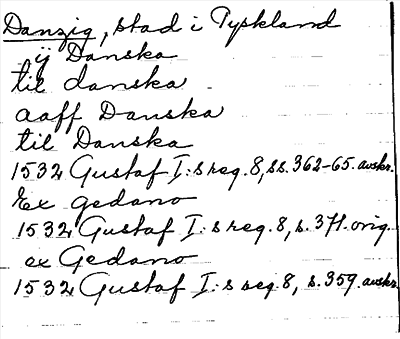 Danzig, stad i Tyskland
ij Danska
til danska
aaff Danska
til Danska
1532 Gustaf I:s reg. 8, ss. 362-65. avskr.
Ex gedano
1532 Gustaf I:s reg. 8, s. 371. orig.
ex Gedano
1532 Gustaf I:s reg. 8, s. 359. avskr.